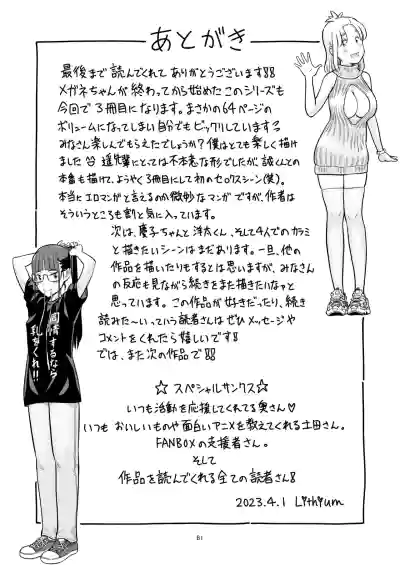 あとがき
最後まで読んでくれてありがとうございます!!
メガネちゃんが終わってから始めたこのシリーズも
今回で3冊目になります。まさかの64ページの
ボリュームになってしまい自分でもビックリしています
みなさん楽しんでもらえたでしょうか?僕はとても楽しく描け
ました 遥先輩にとっては不本意な形でしたが、誠くんとの
本番も描けて、ようやく3冊目にして初のセックスシーン(笑)。
本当にエロマンガと言えるのか微妙なマンガですが、作者は
そういうところも割と気に入っています。
次は、慶子ちゃんと洋太くん、そして4人でのカラミ
と描きたいシーンはまだあります。一旦、他の
作品を描いたりもするとは思いますが、みなさん
の反応も見ながら続きをまた描きたいなァと
思っています。この作品が好きだったり、続き
読みた〜いっていう読者さんはぜひメッセージや
コメントをくれたら嬉しいです!
では、また次の作品で!!
同情するなら
乳をくれ!!
☆ スペシャルサンクス☆
いつも活動を応援してくれてる奥さん♡
いつも おいしいものや面白いアニメを教えてくれる土田さん。
FANBOXの支援者さん。
そして
作品を読んでくれる全ての読者さん!
2023.4.1 Lithium
61